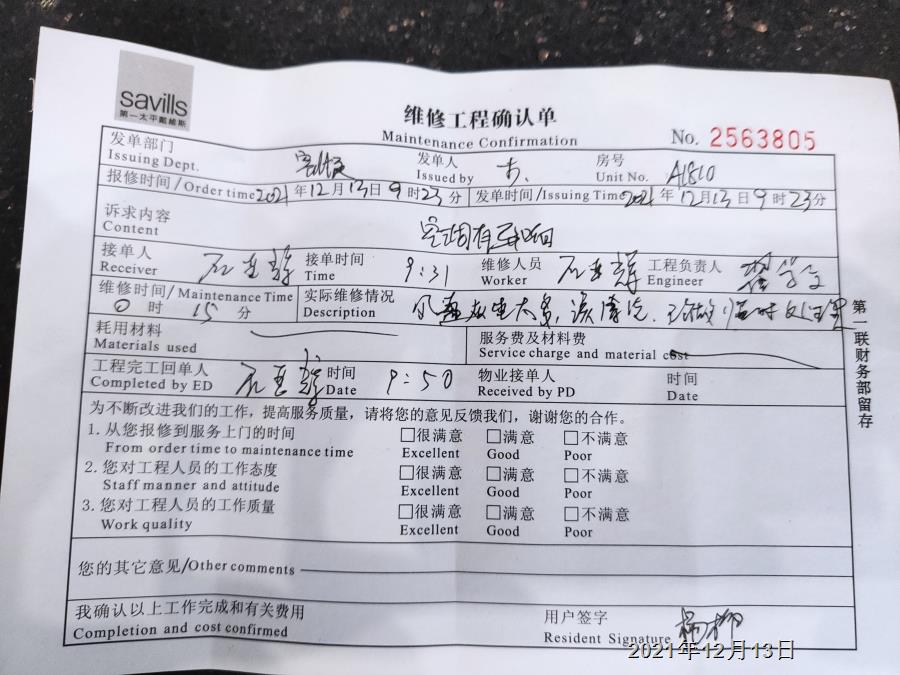 savills
第一太平戴维斯
维修工程确认单
Maintenance Confirmation
No. 2563805
发单部门 发单人 房号
Issuing Dept. 客服 Issued by Unit No. A1810
报修时间/Order time 2021年12月13日9时23分 发单时间/Issuing Time 2021年12月13日9时23分
诉求内容
Content 空调有异响
接单人 接单时间 维修人员 工程负责人
Receiver Time 9:31 Worker Engineer
维修时间/Maintenance Time 实际维修情况
0时15分 Description
耗用材料 服务费及材料费
Materials used Service charge and material cost
工程完工回单人 时间 物业接单人 时间
Completed by ED Date 9:50 Received by PD Date
为不断改进我们的工作，提高服务质量，请将您的意见反馈我们，谢谢您的合作。
1.从您报修到服务上门的时间 □很满意 □满意 □不满意
From order time to maintenance time Excellent Good Poor
2.您对工程人员的工作态度 □很满意 □满意 □不满意
Staff manner and attitude Excellent Good Poor
3.您对工程人员的工作质量 □很满意 □满意 □不满意
Work quality Excellent Good Poor
您的其它意见/Other comments
我确认以上工作完成和有关费用 用户签字
Completion and cost confirmed Resident Signature 杨柳
第一联财务部留存
2021年12月13日